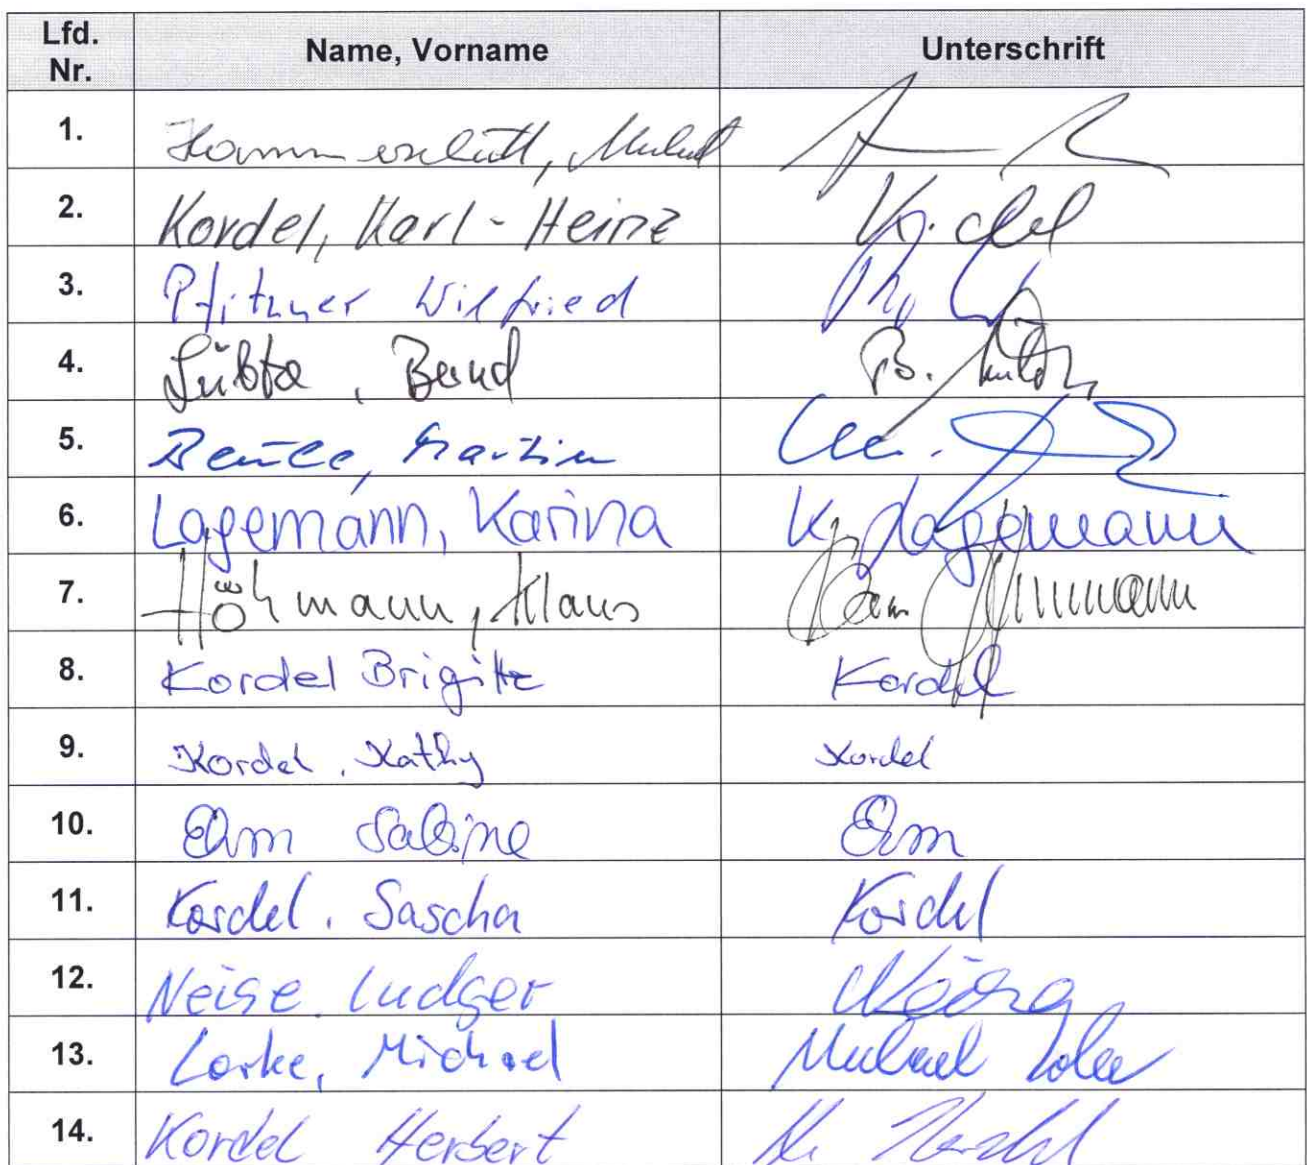 Lfd. Nr. Name, Vorname Unterschrift
1. Hammerschlatt, Michael
2. Kordel, Karl-Heinz Kordel
3. Pfitzner Wilfried
4. Lübke, Bernd B.
5. Martin
6. Lagemann, Karina K. Lagemann
7. Höhmann, Klaus
8. Kordel Brigitte Kordel
9. Kordel, Kathy Kordel
10. Ehm Sabine Ehm
11. Kordel, Sascha Kordel
12. Neise, Ludger
13. Lorke, Michael Michael
14. Kordel Herbert